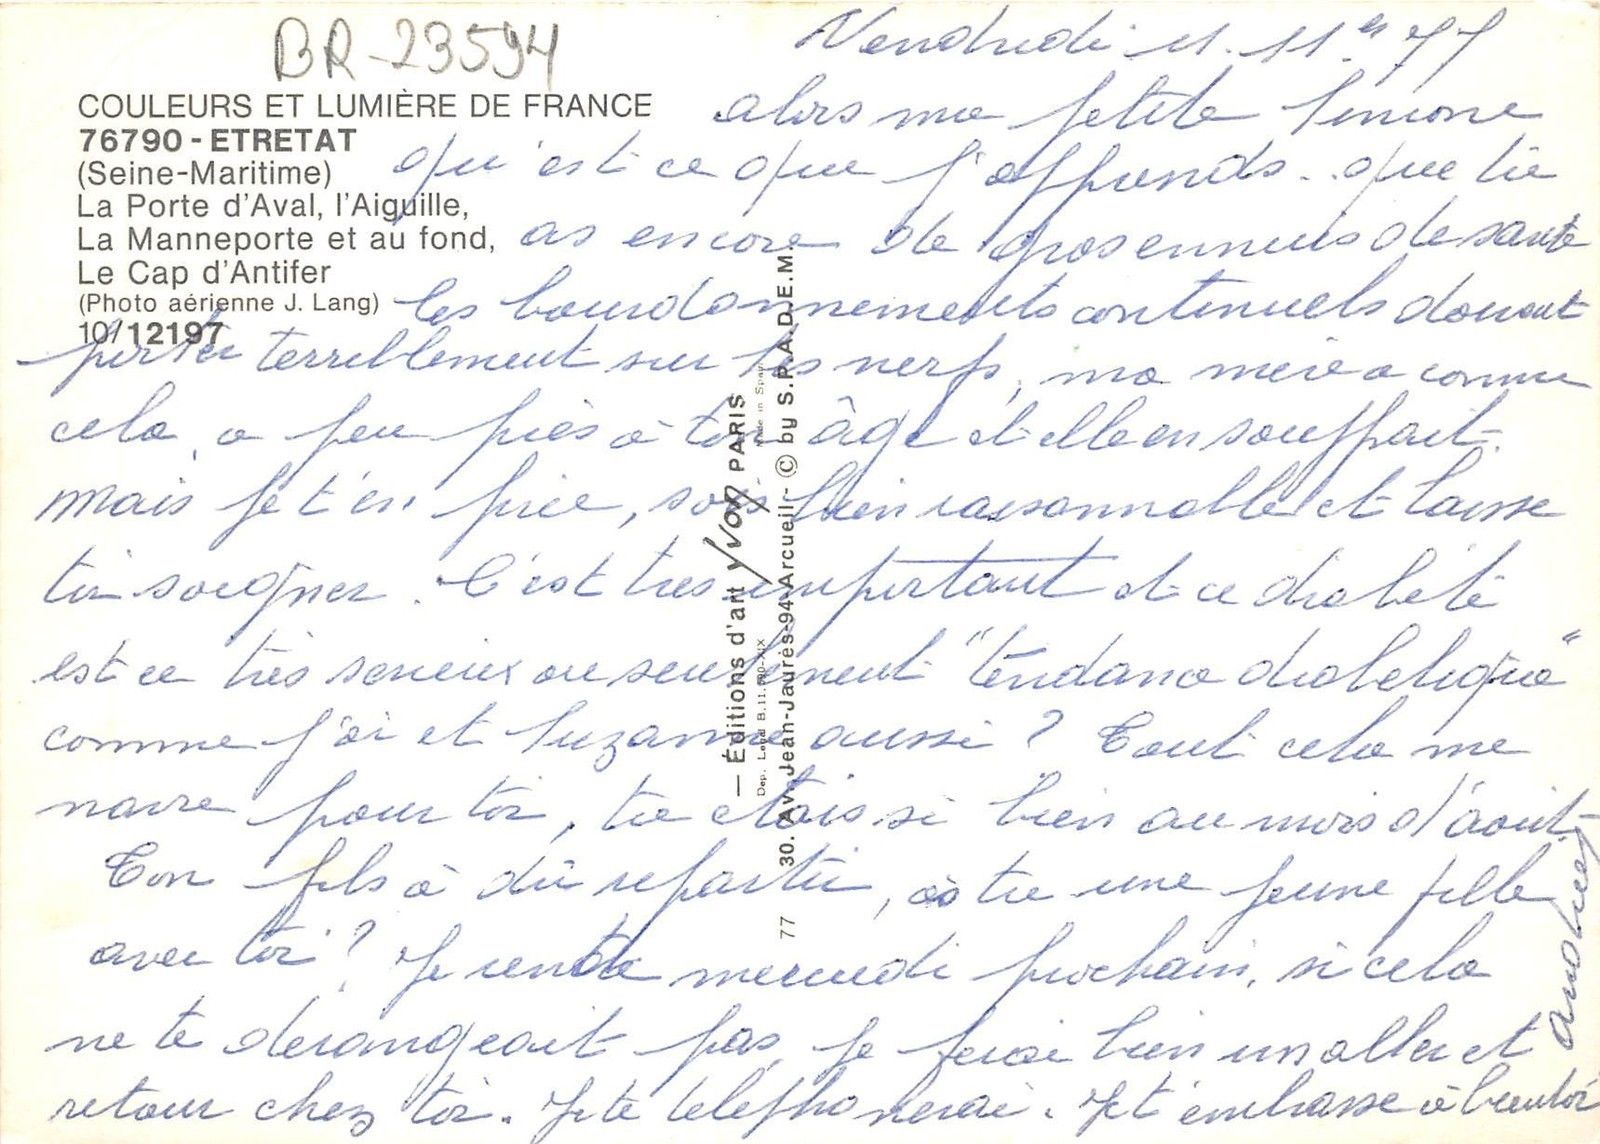 BR-23594
COULEURS ET LUMIÈRE DE FRANCE
76790 - ETRETAT
(Seine-Maritime)
La Porte d'Aval, l'Aiguille,
La Manneporte et au fond,
Le Cap d'Antifer
(Photo aérienne J. Lang)
10/12197
Vendredi 11. 11 77
alors ma petite Simone
qu'est ce que j'apprends. que tu
as encore de gros ennuis de santé
les bourdonnements continuels doivent
porter terriblement sur tes nerfs, ma mère a connu
cela, a peu près à ton âge et elle en souffrait.
Mais je t'en prie, sois bien raisonnable et laisse
toi soigner. C'est très important et ce diabète
est ce très serieux ou seulement "tendance diabétique"
comme j'ai et Suzanne aussi ? Tout cela me
navre pour toi, tu étais si bien au mois d'août
Ton fils à dû repartir, as tu une jeune fille
avec toi ? Je mercredi prochain, si cela
ne te derangeait pas, je ferai bien un aller et
retour chez toi. Je te téléphonerai. Je t'embrasse à bientôt
Andrée
— Éditions d'art Yvon PARIS
Made in Spain
Dep. Legal B. 11.
30. Av. Jean-Jaurès-94-Arcueil - © by S.P.A.D.E.M.
77